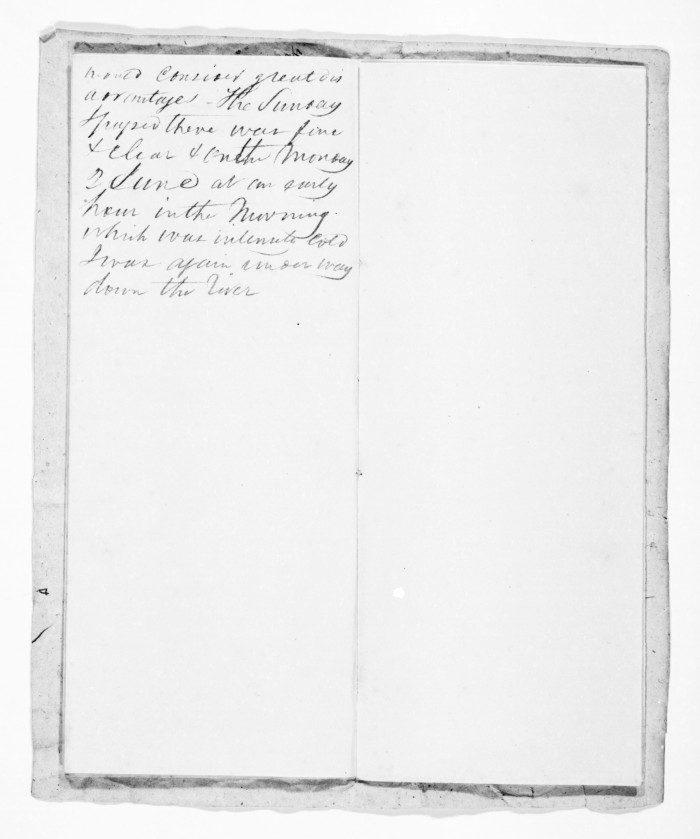 would consider great dis
advantages - The Sunday
I passed there was fine
& clear & on the Monday
2 June at an early
hour in the Morning.
which was intensely cold
I was again under way
down the River